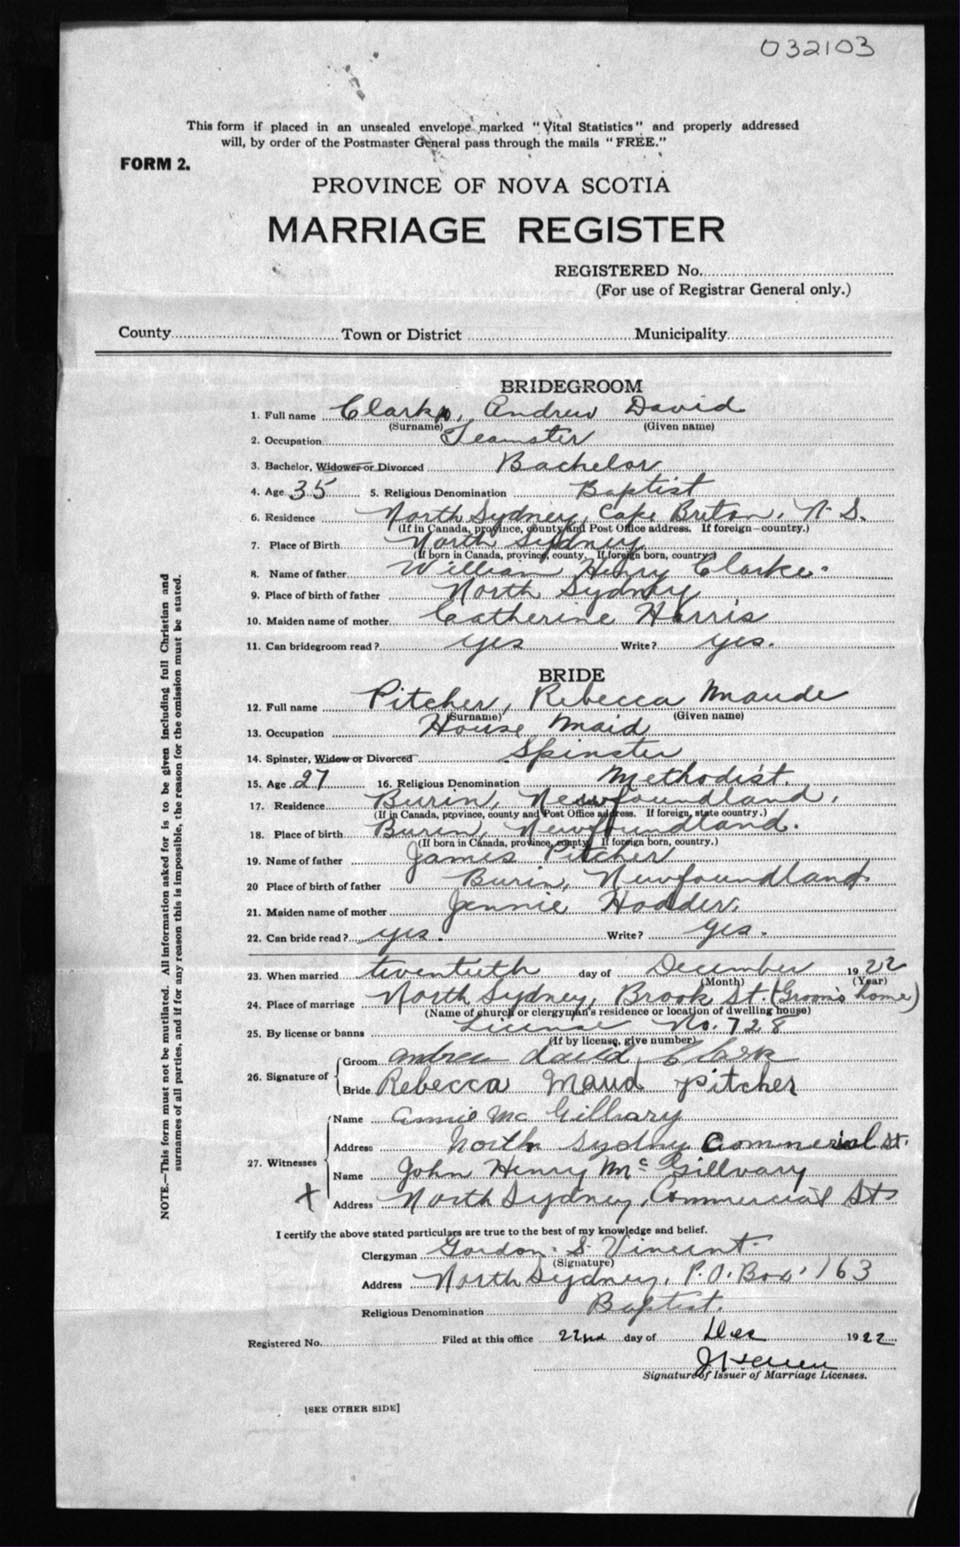 032103
This form if placed in an unsealed envelope marked "Vital Statistics" and properly addressed
will, by order of the Postmaster General pass through the mails "FREE."
FORM 2.
PROVINCE OF NOVA SCOTIA
MARRIAGE REGISTER
REGISTERED No.
(For use of Registrar General only.)
County Town or District Municipality
BRIDEGROOM
1. Full name Clark, Andrew David
(Surname) (Given name)
2. Occupation Teamster
3. Bachelor, Widower or Divorced Bachelor
4. Age 35 5. Religious Denomination Baptist
6. Residence North Sydney, Cape Breton, N.S.
(If in Canada, province, county and Post Office address. If foreign—country.)
7. Place of Birth North Sydney
(If born in Canada, province, county. If foreign born, country.)
8. Name of father William Henry Clarke.
9. Place of birth of father North Sydney
10. Maiden name of mother Catherine Harris
11. Can bridegroom read? yes Write? yes.
BRIDE
12. Full name Pitcher, Rebecca Maude
(Surname) (Given name)
13. Occupation House Maid
14. Spinster, Widow or Divorced Spinster
15. Age 27 16. Religious Denomination Methodist.
17. Residence Burin, Newfoundland,
(If in Canada, province, county and Post Office address. If foreign, state country.)
18. Place of birth Burin, Newfoundland.
(If born in Canada, province, county. If foreign born, country.)
19. Name of father James Pitcher
20 Place of birth of father Burin, Newfoundland
21. Maiden name of mother Jennie Hodder,
22. Can bride read? yes. Write? yes.
23. When married twentieth day of December 1922
(Month) (Year)
24. Place of marriage North Sydney, Brook St. (Groom's home)
(Name of church or clergyman's residence or location of dwelling house)
25. By license or banns License No. 728
(If by license, give number)
26. Signature of Groom Andrew David Clark
Bride Rebecca Maud Pitcher
27. Witnesses Name Annie Mc Gillvary
Address North Sydney Commercial St.
Name John Henry McGillvary
X Address North Sydney, Commercial St
I certify the above stated particulars are true to the best of my knowledge and belief.
Clergyman Gordon S. Vincent.
(Signature)
Address North Sydney, P.O. Box 163
Religious Denomination Baptist.
Registered No. Filed at this office 22nd day of Dec 1922
Signature of Issuer of Marriage Licenses.
[SEE OTHER SIDE]
NOTE.—This form must not be mutilated. All information asked for is to be given including full Christian and
surnames of all parties, and if for any reason this is impossible, the reason for the omission must be stated.